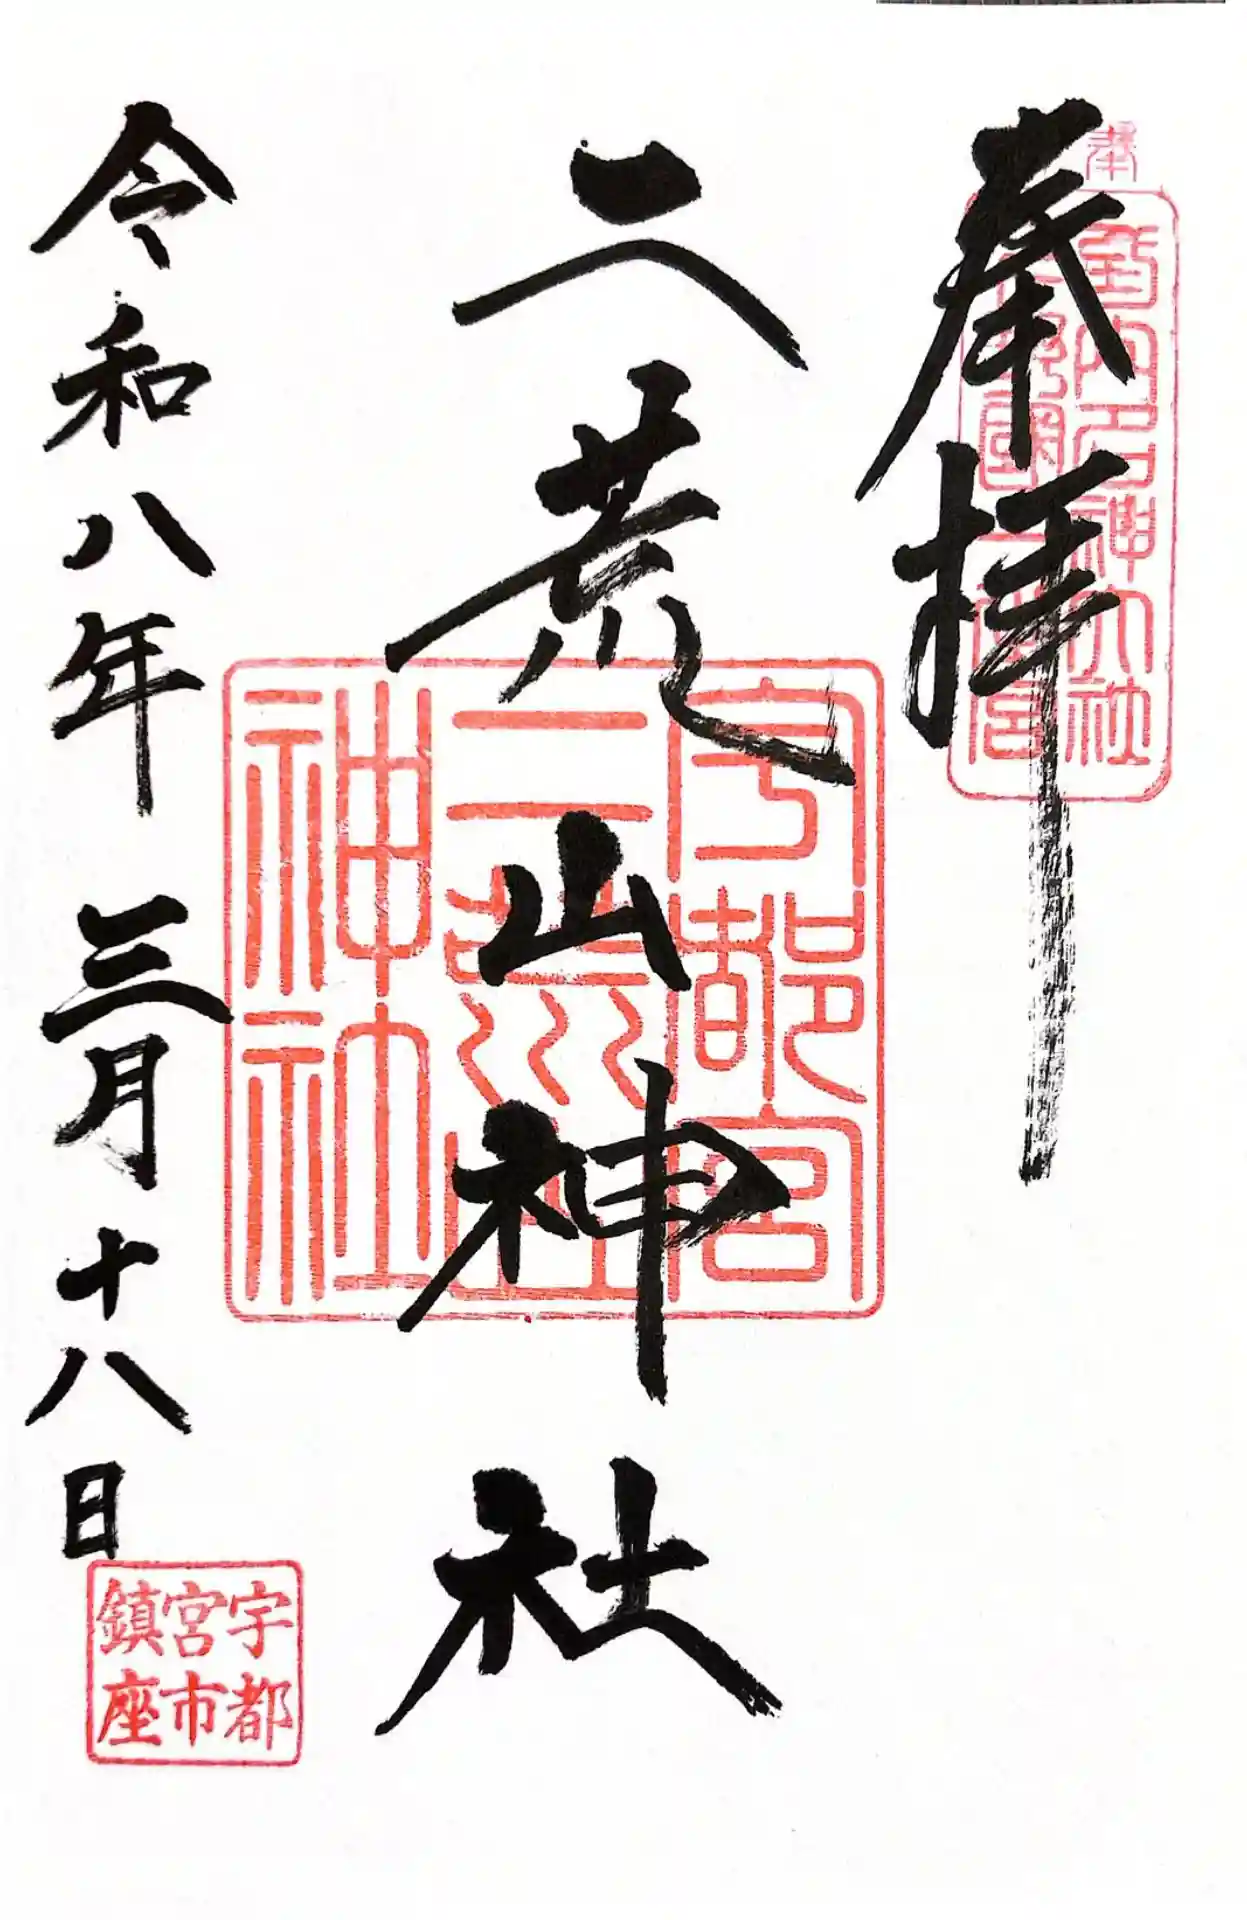 奉拝
延喜式内名神大社
下野國一之宮
二荒山神社
宇都宮
二荒山
神社
令和八年三月十八日
宇都
宮市
鎮座